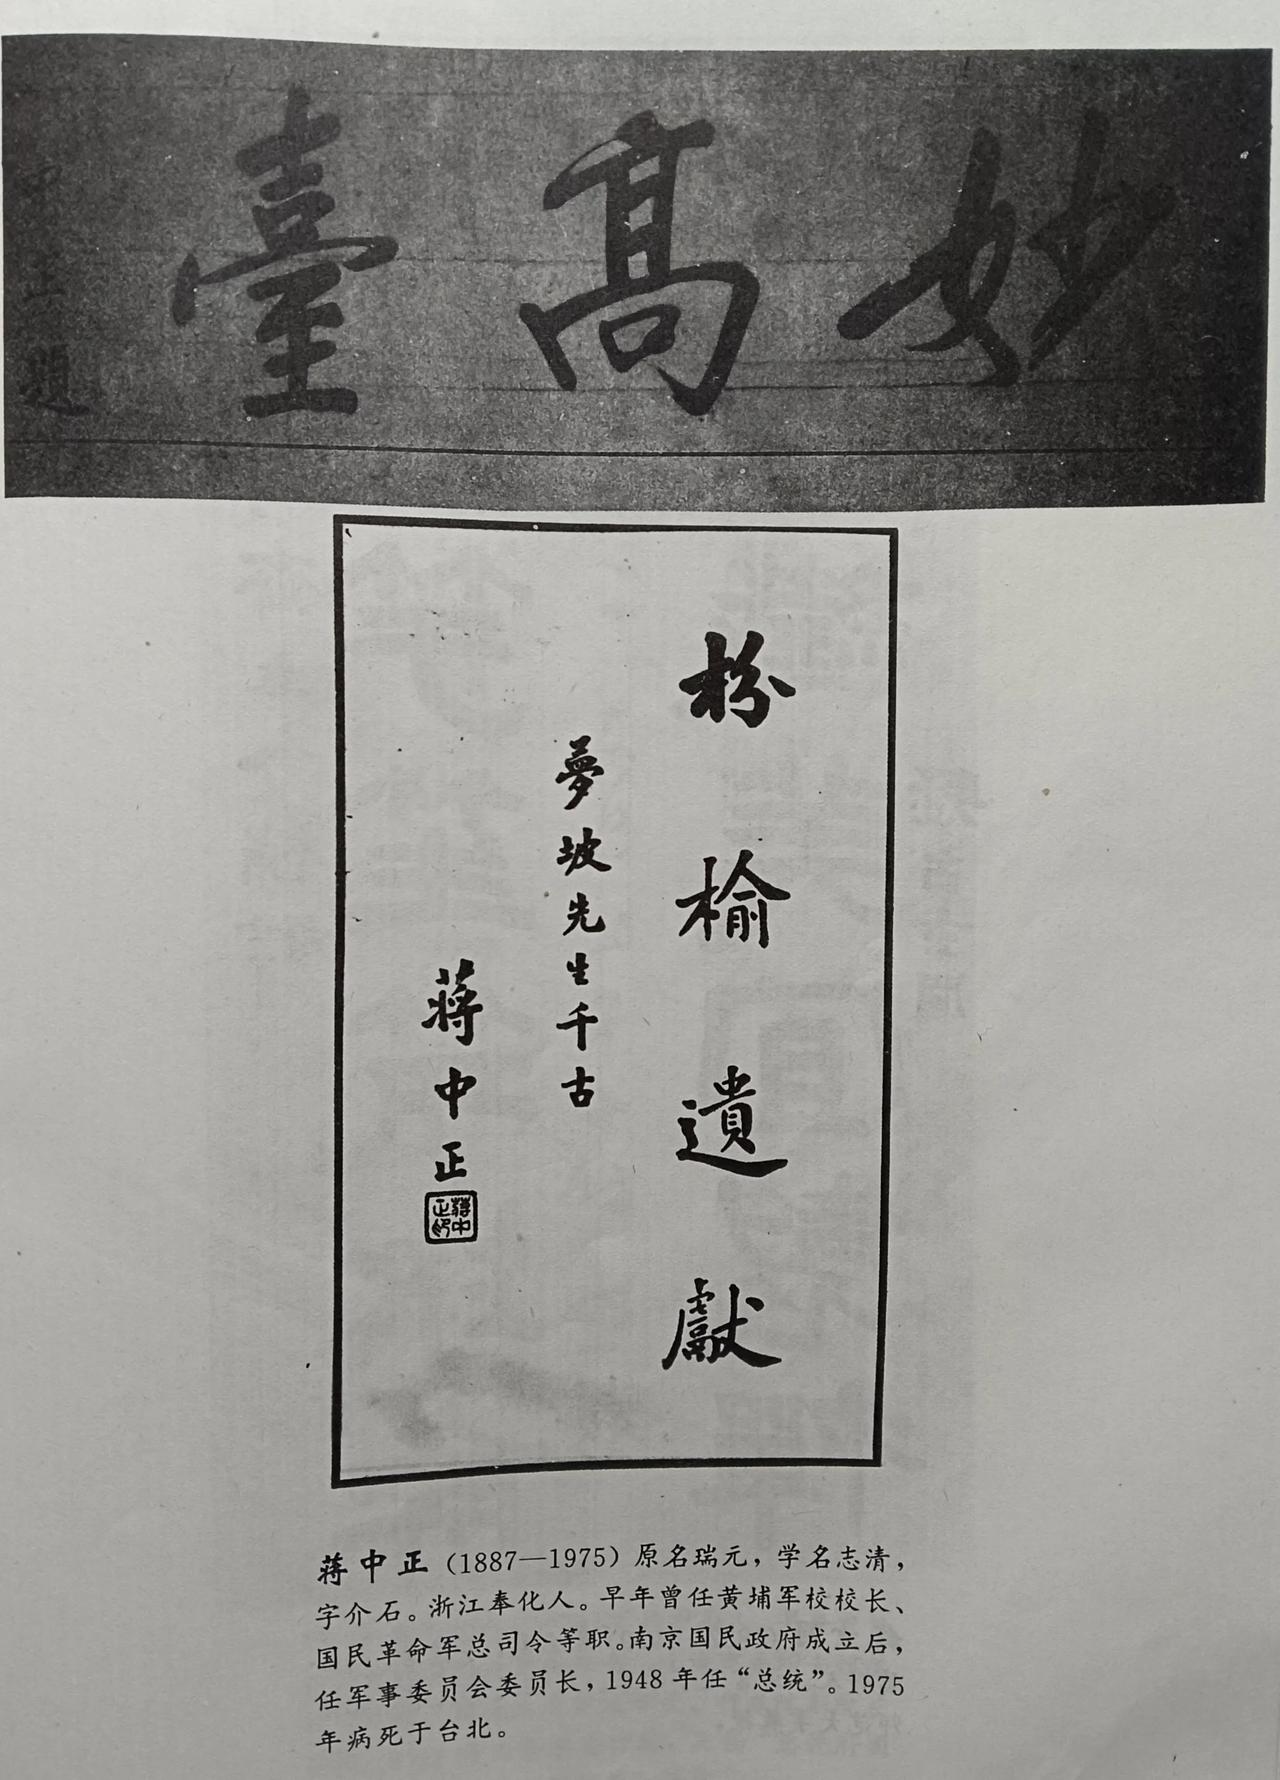 妙高臺
中正題
枌榆遺獻
夢坡先生千古
蔣中正
蔣中正印
蒋中正（1887—1975）原名瑞元，学名志清，
字介石。浙江奉化人。早年曾任黄埔军校校长、
国民革命军总司令等职。南京国民政府成立后，
任军事委员会委员长，1948年任“总统”。1975
年病死于台北。